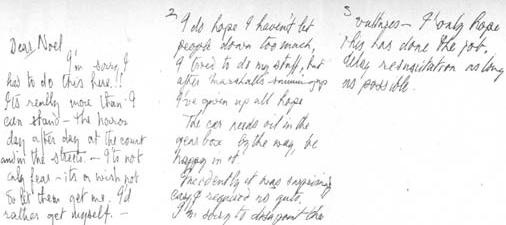 Dear Noel
I'm sorry I
has to do this here!!
It's really more than I
can stand – the horror
day after day at the court
and in the streets. – It's not
only fear – its a wish not
to let them get me. I'd
rather get myself. –
2
I do hope I haven't let
people down too much,
I tried to do my stuff, but
after Marshall's summing up
I've given up all hope
The car needs oil in the
gear box by the way, be
happy in it
Incidently it was surprising
easy & required no guts.
I'm sorry to disapoint the
3
vultures – I only hope
this has done the job.
delay resuscitation as long
as possible.